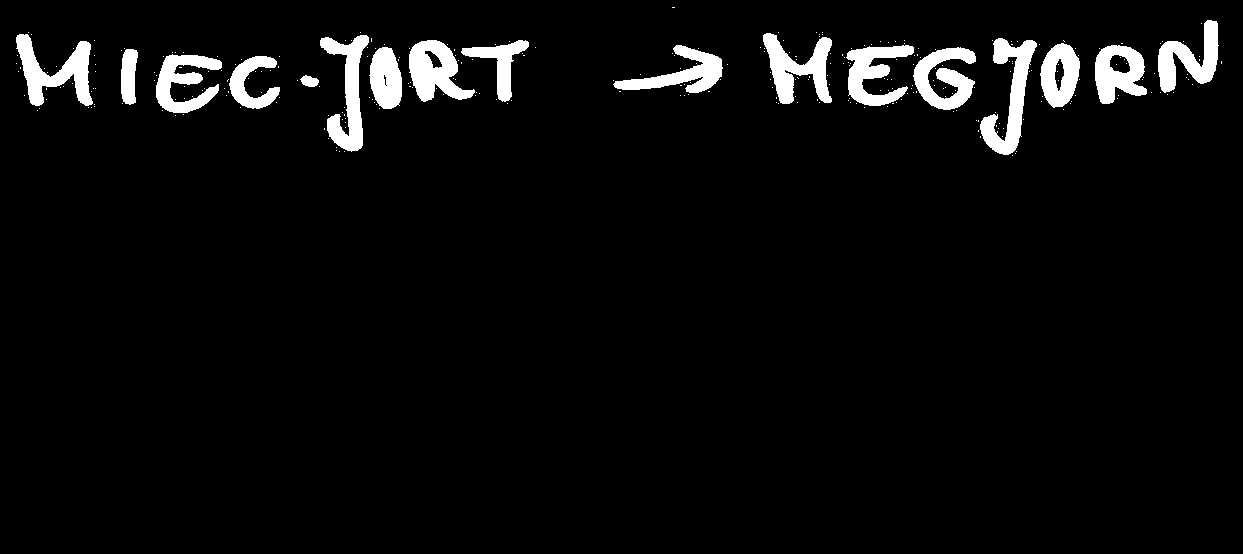 MIEC-JORT → MEGJORN